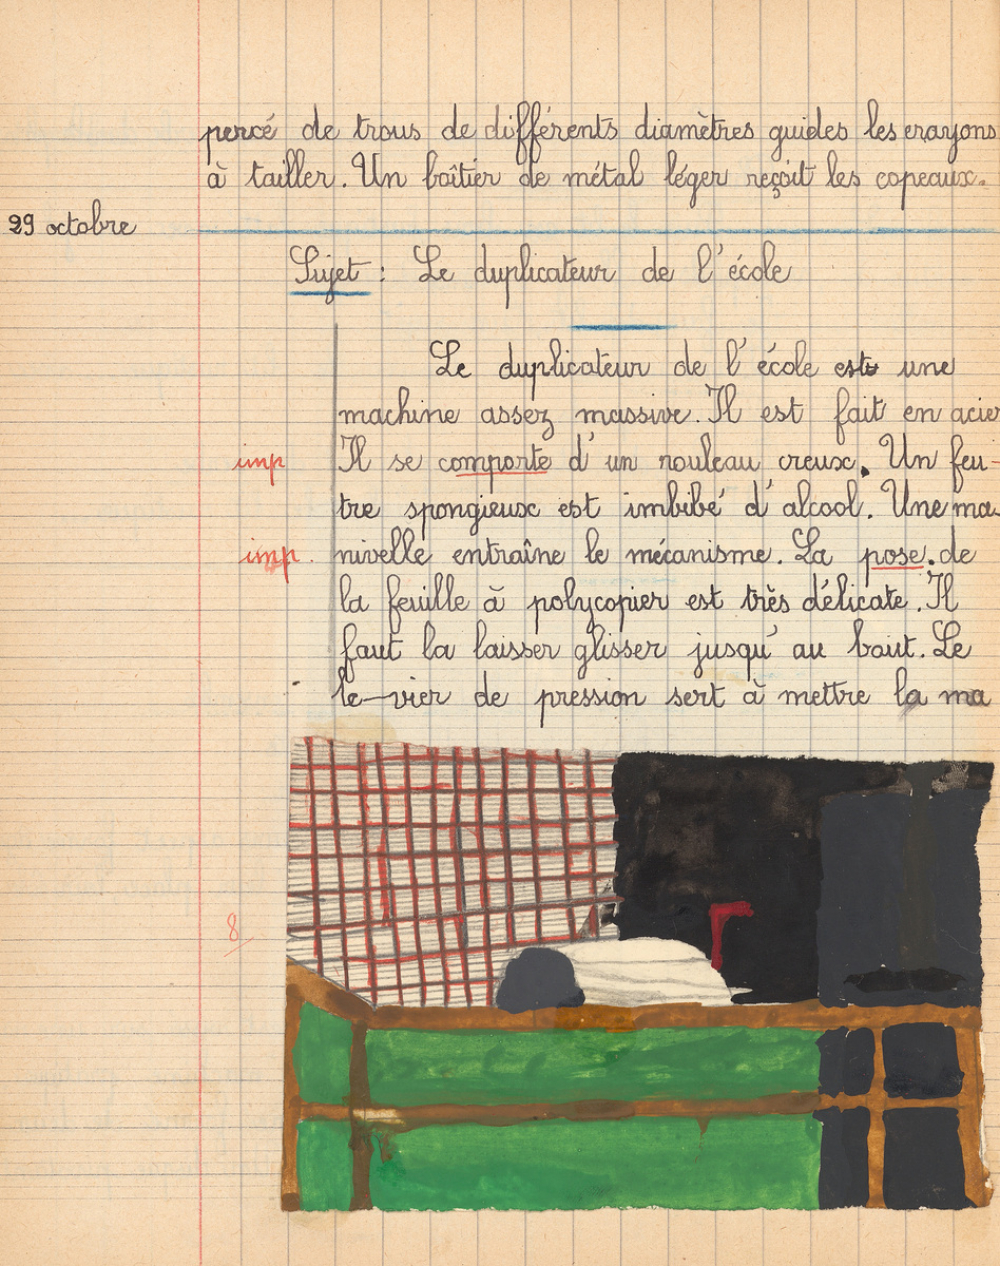 percé de trous de différents diamètres guides les crayons
à tailler. Un boîtier de métal léger reçoit les copeaux.
29 octobre
Sujet : Le duplicateur de l'école
Le duplicateur de l'école est une
machine assez massive. Il est fait en acier
imp Il se comporte d'un rouleau creux. Un feu-
tre spongieux est imbibé d'alcool. Une ma-
imp. nivelle entraîne le mécanisme. La pose de
la feuille à polycopier est très délicate. Il
faut la laisser glisser jusqu'au bout. Le
le-vier de pression sert à mettre la ma
8